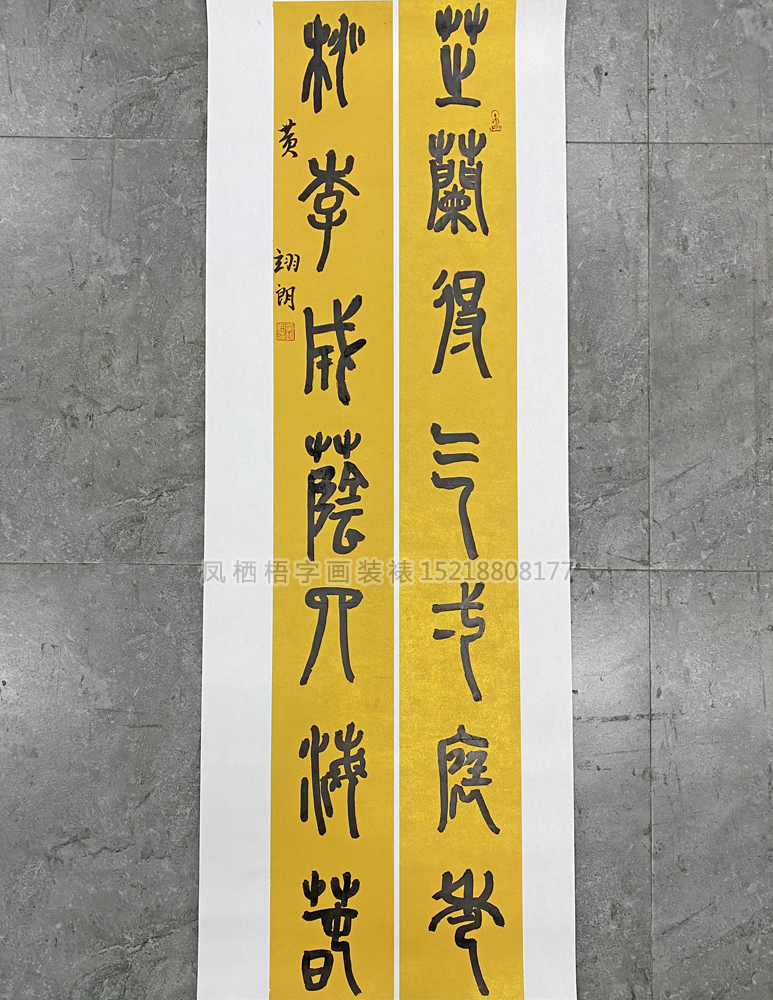 芝蘭得气弌庭秀
桃李成蔭四海春
黄翊朗
凤栖梧字画装裱15218808177